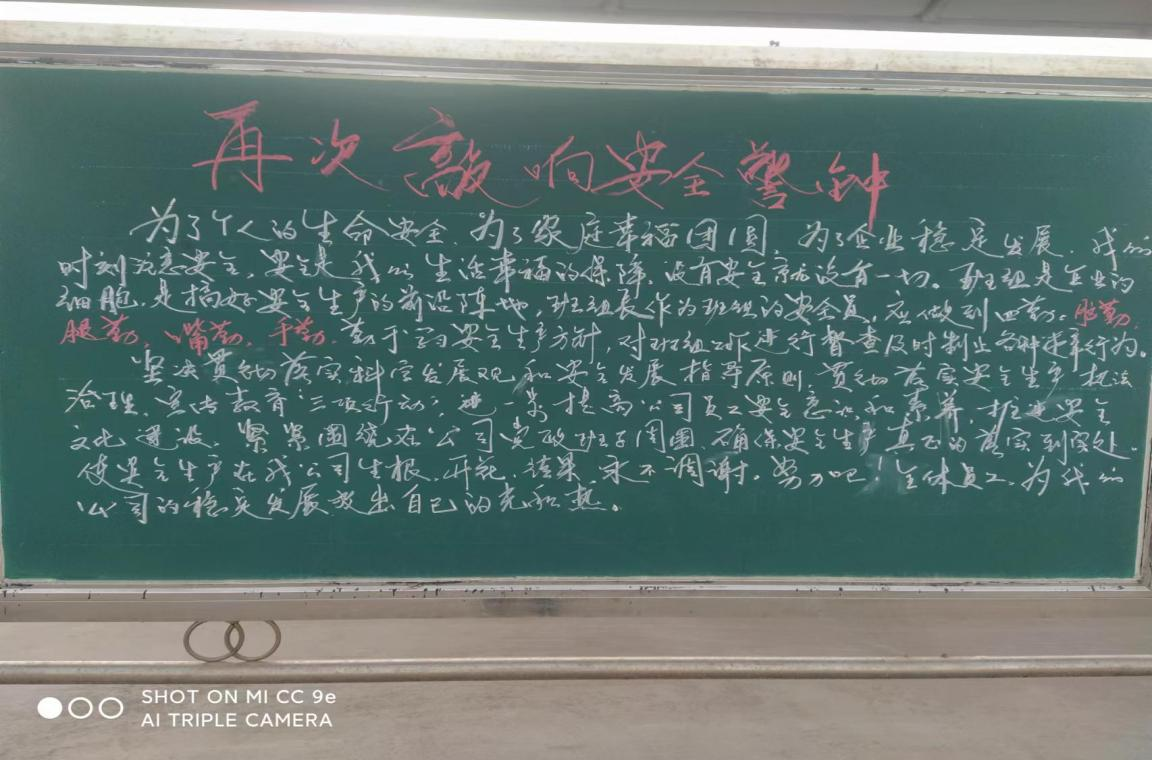 再次敲响安全警钟
为了个人的生命安全、为了家庭幸福团圆、为了企业稳定发展、我们
时刻注意安全，安全是我们生活幸福的保障、没有安全就没有一切。班组是企业的
细胞、是搞好安全生产的前沿阵地，班组长作为班组的安全员，应做到四勤。脑勤、
腿勤、嘴勤、手勤、勤于宣安全生产方针，对班组工作进行督查及时制止各种违章行为。
坚决贯彻落实科学发展观和安全发展指导原则、贯彻落实安全生产执法
治理、宣传教育“三项行动”，进 提高公司员工安全意识和素养、推进安全
文化建设、紧紧围绕在公司党政班子周围、确保安全生产真正的落实到实处、
使安全生产在我公司生根、开花、结果、永不凋谢。努力吧！全体员工、为我们
公司的稳定发展发出自己的光和热。
SHOT ON MI CC 9e
AI TRIPLE CAMERA